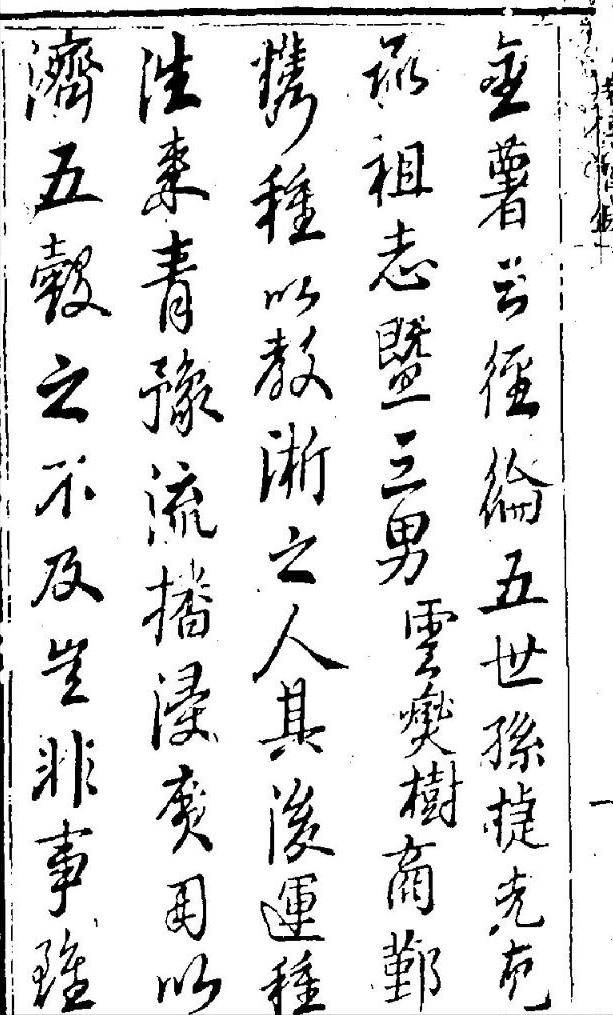 金薯云經綸五世孫捷先克
承祖志暨三男雲燮樹商鄞
攜種以教浙之人其後運種
往來青豫流播浸廣用以
濟五穀之不及豈非事雖